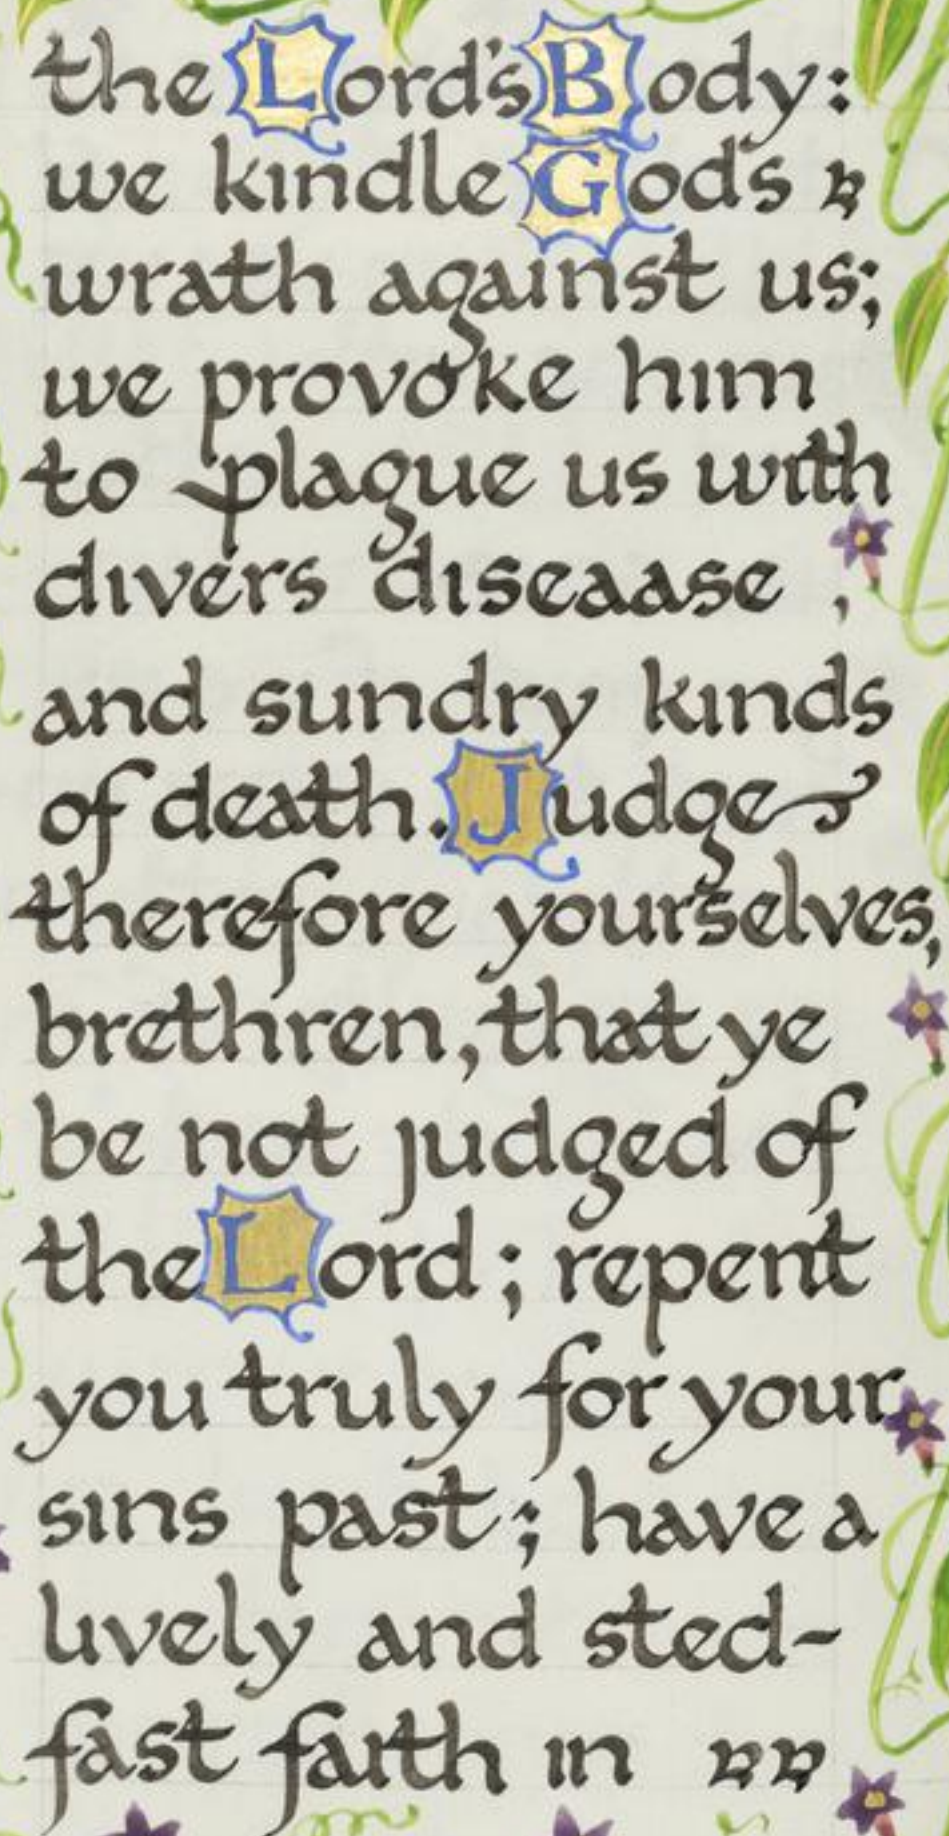 the Lord's Body:
we kindle God's
wrath against us;
we provoke him
to plague us with
divers diseaase ,
and sundry kinds
of death. Judge
therefore yourselves,
brethren, that ye
be not judged of
the Lord; repent
you truly for your
sins past; have a
lively and sted-
fast faith in